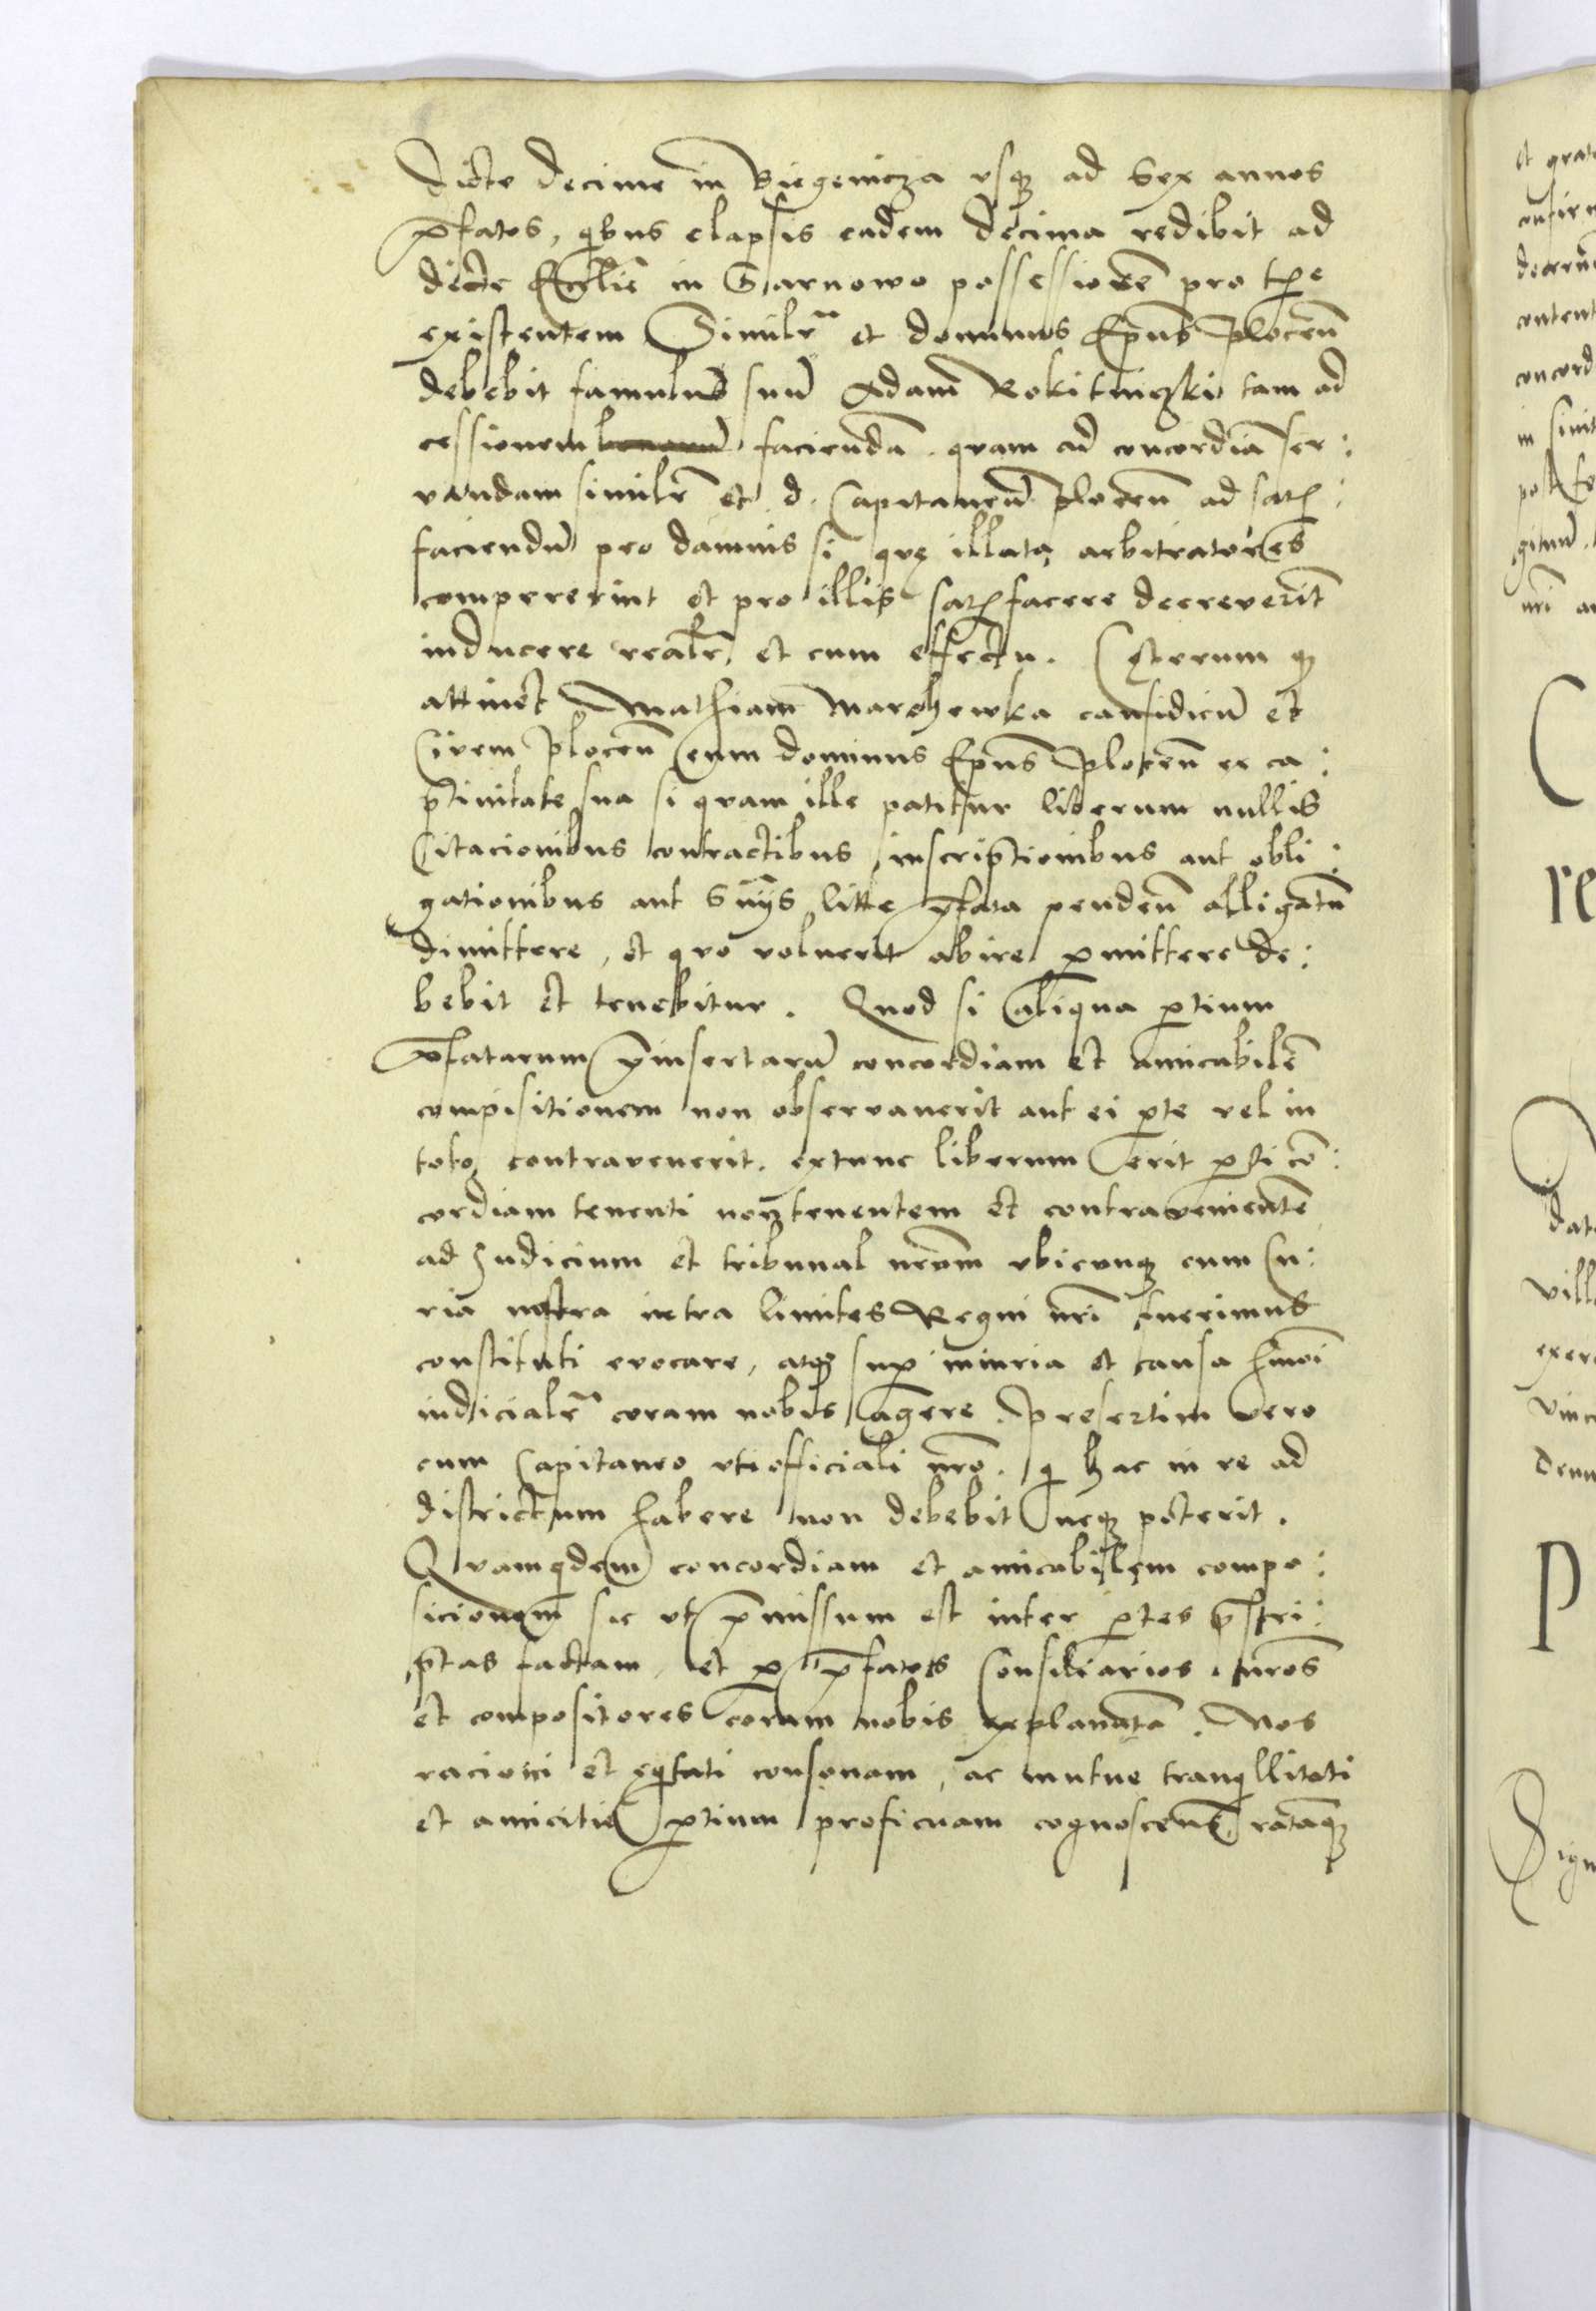 dicte decime in Biezenicza vsq ad Sex annos
p̄fatos, qibus elapsis eadem decima redibit ad
dicte Ecclīe in Sarnowo possessorē pro tp̄e
existentem Similr̄ et dominus Ep̄us Plocēn
debebit famulūs suū Adam̄ Rokitniczki tam ad
cessionem faciendā quam ad concordiā ser:
vandam similr̄ et d. Capitaneū plocēn ad satz
faciendū pro damnis si quę illata arbitratores
compererint et pro illis satzfacere decreverīt
inducere realr̄ et cum effectu. Cęterum q
attinet Mathiam̄ Marchewka causidicū et
Civem Plocēn eum dominus Ep̄us Plocēn ex ca:
ptivitate sua si quam ille patitur liberum nullis
Citacionibus contractibus inscriptionibus aut obli:
gationibus aut Snijs litte p̄fata pendeñ alligatū
dimittere, et quo voluerit abire p̄mittere de:
bebit et tenebitur. Quod si aliqua p̄tium
p̄fatarum p̄insertarū concordiam et amicabilē
compositionem non observaverit aut ei p̄te vel in
toto contravenerit. extunc liberum erit p̄ti cō:
cordiam tenenti non tenentem et contravenientē
ad Judicium et tribunal nr̄om vbicunq cum Cu:
ria nostra intra limites Regni nr̄i fuerimus
constituti evocare, atq sup iniuria et causa hmōi
iudicialr̄ coram nobis agere. Presertim vero
cum Capitaneo vti officiali nr̄o. q hac in re ad
districtum habere non debebit neq poterit.
Quamqdem concordiam et amicabilem compo:
sicionem sic vt p̄missum est inter p̄tes p̄scri:
ptas factam et p̄ p̄fatos Consiliarios nr̄os
et compositores coram nobis explanatā. Nos
racioni et eqitati consonam, ac mutue tranqllitati
et amicitie p̄tium proficuam cognoscens̄ ratāq